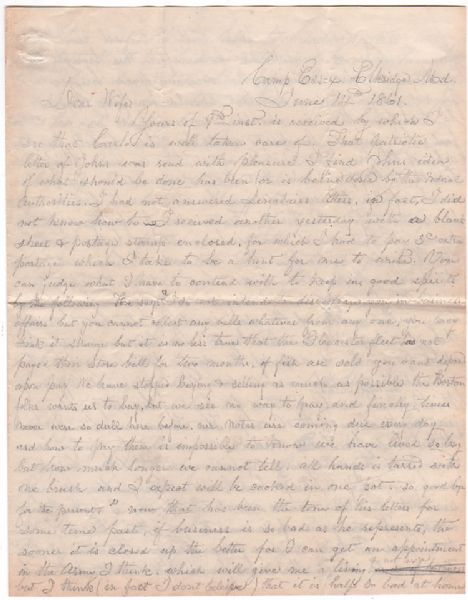 Camp Essex Elkridge Md.
June 14th 1861.
Dear Wife
Yours of 9th inst. is received by which I
see that Carlos is well taken care of. That patriotic
letter of Johns was read with pleasure I find him idea
of what should be done has been or is being done by the
authorities. I had not answered letters, in fact, I did
not know how to I received another yesterday with a blank
sheet & postage stamps enclosed, for which I had to pay 3c extra
postage which I take to be a hint for me to write. You
can judge what I have to contend with to keep in good spirits
by the following. He says "I do not intend to discourage you in
affairs but you cannot collect any bills whatever from any one, you may
think it strange but it is no less true that the Gloucester fleet has not
paid their store bill for two months, if fish are sold you must depend
upon pay. We have stopped buying & selling as much as possible the Boston
folks wants us to buy, but we see no way to pay, and fancy times
never were so dull here before, our notes are coming due every day
and how to pay them is impossible to know we have lived so far
but how much longer we cannot tell, all hands is tarred with
one brush and I expect will be soaked in one vat. so good bye
for the present" now that has been the tone of his letters for
some time past, if business is so bad as he represents, the
sooner it is closed up the better for I can get an appointment
in the Army I think, which will give me a living,
but I think (in fact I dont believe) that it is half so bad at home